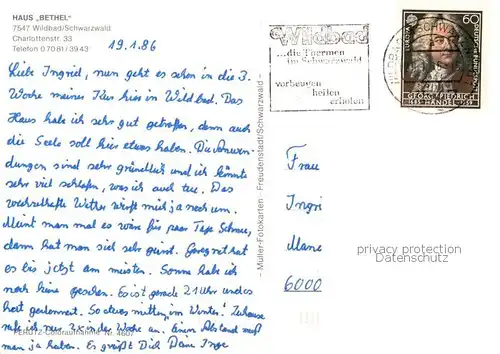 HAUS „BETHEL"
7547 Wildbad/Schwarzwald
Charlottenstr. 33
Telefon 07081/3943
19.1.86
Liebe Ingrid, nun geht es schon in die 3.
Woche meiner Kur hier in Wildbad. Das
Haus habe ich sehr gut getroffen, denn auch
die Seele soll hier etwas haben. Die Anwen-
dungen sind sehr gründlich und ich könnte
sehr viel schlafen, was ich auch tue. Das
wechselhafte Wetter wirft mich ja noch um.
Meint man mal es wär für paar Tage Schnee,
dann hat man sich sehr geirrt. Geregnet hat
es bis jetzt am meisten. Sonne habe ich
noch keine gesehen. Es ist gerade 21 Uhr und es
hat gedonnert. So etwas mitten im Winter! Zuhause
rufe ich nur 2x in der Woche an. Einen Abstand muß
man ja haben. Es grüßt Dich Deine Inge
PERUTZ-Coloraufnahme Nr. 4607
– Müller-Fotokarten - Freudenstadt/Schwarzwald –
Wildbad
...die Thermen
im Schwarzwald
vorbeugen
heilen
erholen
EUROPA
60
DEUTSCHE BUNDESPOST
GEORG FRIEDRICH
HÄNDEL
Frau
Ingri
Mane
6000
privacy protection
Datenschutz